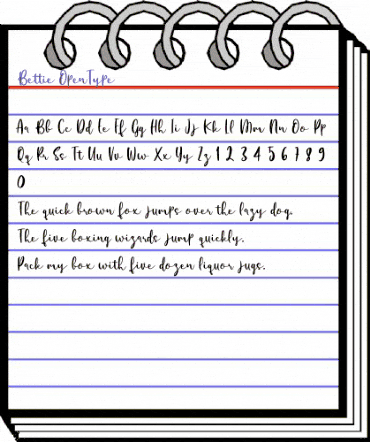 Bettie OpenType
Aa Bb Cc Dd Ee Ff Gg Hh Ii Jj Kk Ll Mm Nn Oo Pp
Qq Rr Ss Tt Uu Vv Ww Xx Yy Zz 1 2 3 4 5 6 7 8 9
0
The quick brown fox jumps over the lazy dog.
The five boxing wizards jump quickly.
Pack my box with five dozen liquor jugs.